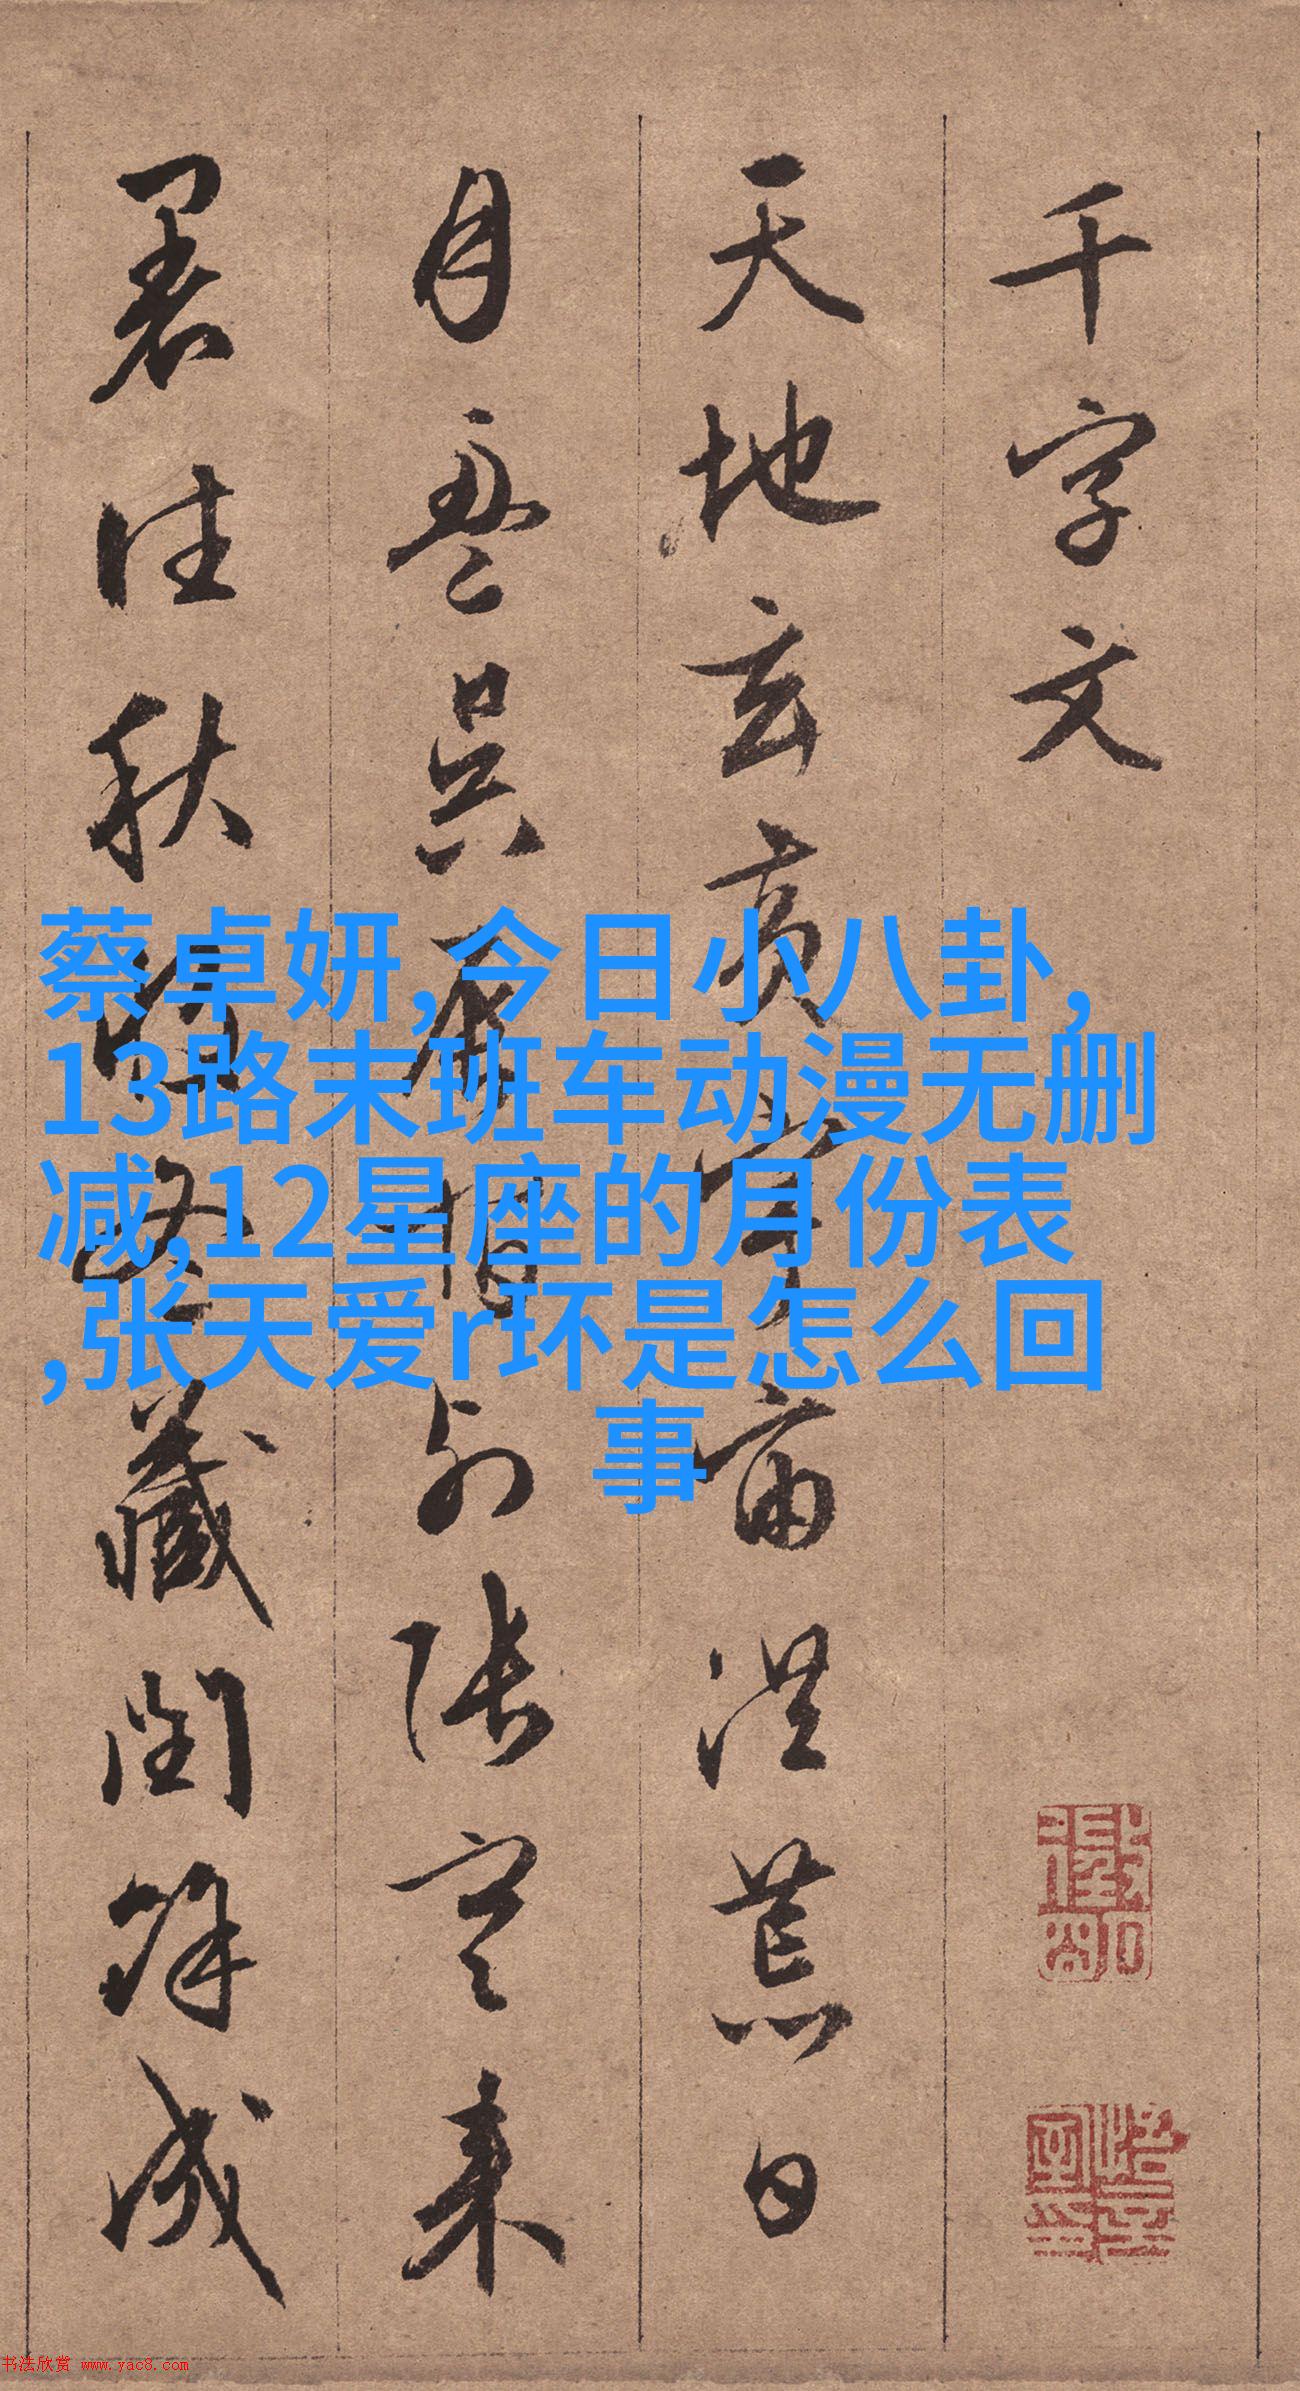 千字文
天地玄黄宇宙洪荒日
月盈昃辰宿列張寒来
暑往秋收冬藏閏餘成
蔡卓妍,今日小八卦,
13路末班车动漫无删
减,12星座的月份表
,张天爱r环是怎么回
事
书法欣赏 www.yac8.com